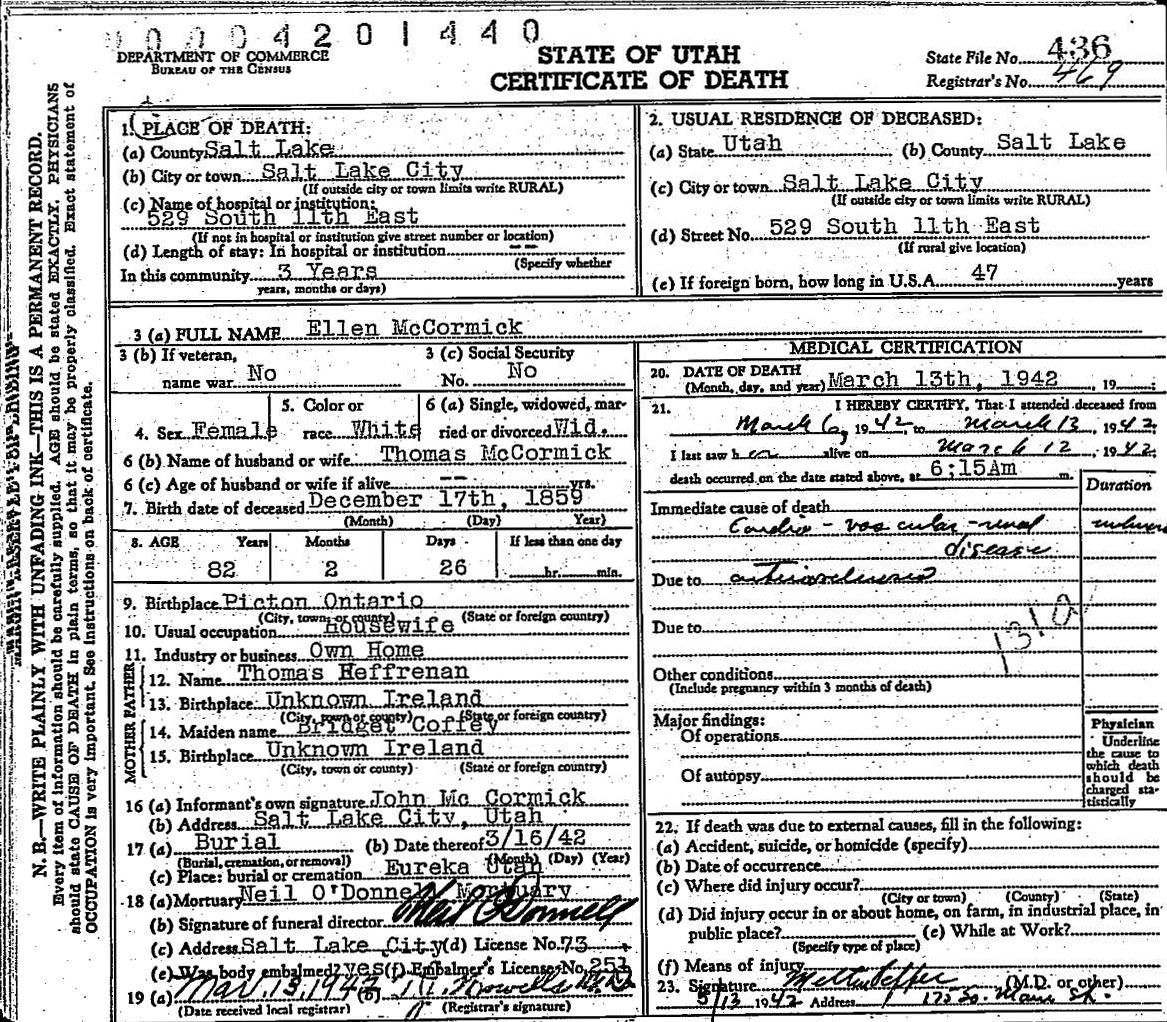 0 0 0 4 2 0 1 4 4 0
DEPARTMENT OF COMMERCE
BUREAU OF THE CENSUS
STATE OF UTAH
CERTIFICATE OF DEATH
State File No. 436
Registrar's No. 469
N. B.—WRITE PLAINLY WITH UNFADING INK—THIS IS A PERMANENT RECORD.
Every item of information should be carefully supplied. AGE should be stated EXACTLY. PHYSICIANS
should state CAUSE OF DEATH in plain terms, so that it may be properly classified. Exact statement of
OCCUPATION is very important. See instructions on back of certificate.
1. PLACE OF DEATH:
(a) County Salt Lake
(b) City or town Salt Lake City
(If outside city or town limits write RURAL)
(c) Name of hospital or institution:
529 South 11th East
(If not in hospital or institution give street number or location)
(d) Length of stay: In hospital or institution --
(Specify whether
In this community 3 Years
years, months or days)
2. USUAL RESIDENCE OF DECEASED:
(a) State Utah (b) County Salt Lake
(c) City or town Salt Lake City
(If outside city or town limits write RURAL)
(d) Street No. 529 South 11th East
(If rural give location)
(e) If foreign born, how long in U.S.A. 47 years
3 (a) FULL NAME Ellen McCormick
3 (b) If veteran,
name war No
3 (c) Social Security
No. No
4. Sex Female
5. Color or
race White
6 (a) Single, widowed, mar-
ried or divorced Wid.
6 (b) Name of husband or wife Thomas McCormick
6 (c) Age of husband or wife if alive -- yrs.
7. Birth date of deceased December 17th, 1859
(Month) (Day) Year)
8. AGE Years Months Days If less than one day
82 2 26 hr. min.
9. Birthplace Picton Ontario
(City, town or county) (State or foreign country)
10. Usual occupation Housewife
11. Industry or business Own Home
FATHER
12. Name Thomas Heffrenan
13. Birthplace Unknown Ireland
(City, town or county) (State or foreign country)
MOTHER
14. Maiden name Bridget Coffey
15. Birthplace Unknown Ireland
(City, town or county) (State or foreign country)
16 (a) Informant's own signature John Mc Cormick
(b) Address Salt Lake City, Utah
17 (a) Burial (b) Date thereof 3/16/42
(Burial, cremation, or removal) (Month) (Day) (Year)
(c) Place: burial or cremation Eureka Utah
18 (a) Mortuary Neil O'Donnell Mortuary
(b) Signature of funeral director Neil O'Donnell
(c) Address Salt Lake City (d) License No. 73
(e) Was body embalmed? yes (f) Embalmer's License No. 251
19 (a) Mar. 13, 1942 (b)
(Date received local registrar) (Registrar's signature)
MEDICAL CERTIFICATION
20. DATE OF DEATH
(Month, day, and year) March 13th, 1942, 19
21. I HEREBY CERTIFY, That I attended deceased from
March 6, 1942, to March 13, 1942;
I last saw her alive on March 12, 1942;
death occurred on the date stated above, at 6:15Am m.
Duration
Immediate cause of death
Cardio-vascular-renal
disease
Due to
1310
Due to
Other conditions
(Include pregnancy within 3 months of death)
Major findings:
Of operations
Of autopsy
Physician
Underline
the cause to
which death
should be
charged sta-
tistically
22. If death was due to external causes, fill in the following:
(a) Accident, suicide, or homicide (specify)
(b) Date of occurrence
(c) Where did injury occur?
(City or town) (County) (State)
(d) Did injury occur in or about home, on farm, in industrial place, in
public place? (e) While at Work?
(Specify type of place)
(f) Means of injury
23. Signature (M.D. or other)
3/13 1942 Address 175 So. Main St.